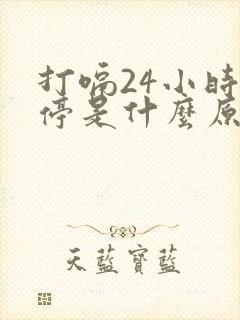 打嗝24小時
停是什麼原
天藍寶藍